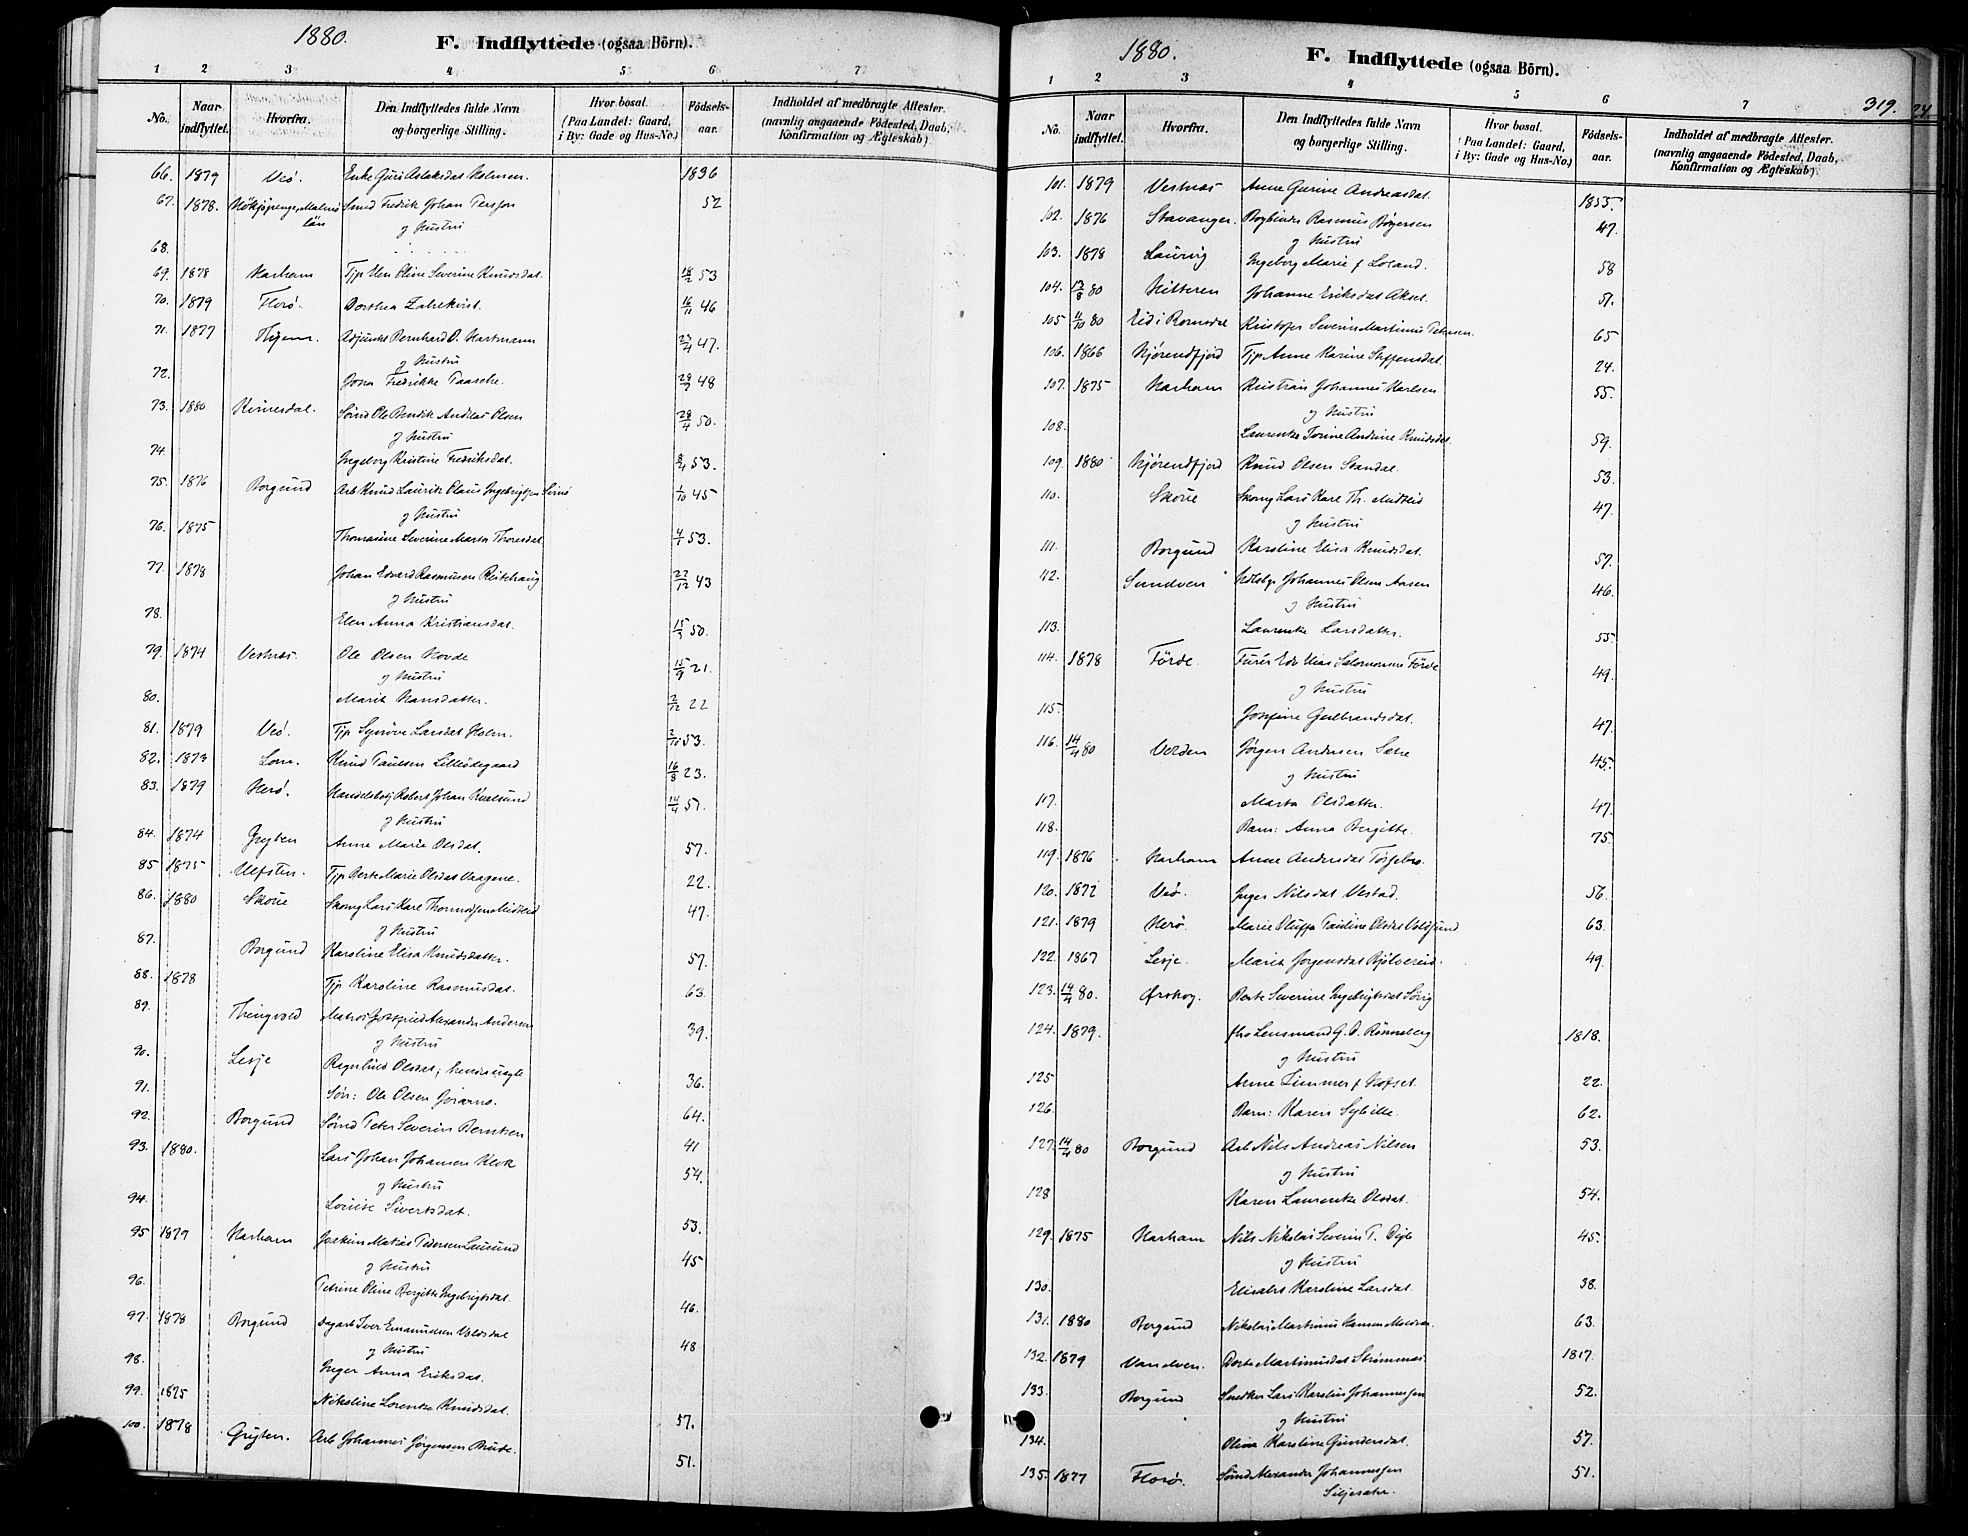 1880.
F. Indflyttede (ogsaa Börn).
1 2 3 4 5 6 7
No. Naar indflyttet. Hvorfra. Den Indflyttedes fulde Navn og borgerlige Stilling. Hvor bosat. (Paa Landet: Gaard, i By: Gade og Hus-No.) Födsels-aar. Indholdet af medbragte Attester. (navnlig angaaende Födested, Daab, Konfirmation og Ægteskab)
66. 1879 Veö. Enke Guri Aslaksdat Holmen. 1836
67. 1878. Smed Fredrik Johan 52
län og Hustru
68.
69. 1878 Harham Tjp. Oline Severine Knudsdat. 18/2 53
70. 1879 Florö. Dorthea 16/11 46
71. 1877 Adjunkt Bernhard D. Hartmann 23/4 47.
og Hustru
72. Fredrikke Taasche. 48
73. 1880 Ole Bendik Andreas Olsen 28/4 50.
og Hustru
74. Ingeborg Kristine Fredriksdat. 53.
75. 1876 Borgund Arb Knud Laurits Olaus 1/10 45
og Hustru
76. 1875 Thomasine Severine Marta Thoresdat 4/1 53.
77. 1878 Johan Edvard Rasmusen 22/12 43
og Hustru
78. Elen Anna Kristiansdat. 50.
79. 1874 Vestnæs. Ole Olsen Hovde 15/9 21.
og Hustru
80. Marit Hansdatter. 2/12 22
81. 1879 Veö. Tjp Synöve Larsdat Holm. 53.
82. 1873 Lom. Knud Paulsen Lillödegaard 16/8 23.
83. 1879 Herö. Robert Johan Kvalsund 14/4 51.
og Hustru
84. 1874 Grytten Anne Marie Olsdat. 57.
85 1875 Ulfsten. Tjp Berte Marie Olsdat Vaagene. 22.
86. 1880 Skoue Skomg Lars Kare 47.
og Hustru
87. Borgund Karoline Elisa Knudsdatter. 57.
88. 1878 Tjp Karoline Rasmusdat. 63
89. Thingvold Matros Alexander Andersen 39.
og Hustru
90. Lesje Ragnhild Olsdat, 36.
91. Sön: Ole Olsen 64.
92. Borgund Peter Severin Berntsen 41
93. 1880. Lars Johan Johansen Klok 54.
og Hustru
94. Louise Sivertsdat. 53.
95 1879 Harham Joakim Matias Pedersen 45
og Hustru
96. Petrine Oline Bergitte Ingebrigtsdat. 46.
97. 1878 Borgund Dagarb Iver Emanuelsen Voldsdal 48
og Hustru
98. Inger Anna Eriksdat.
99. 1875 Nikoline Lorentse Knudsdat. 57.
100. 1878 Grytten. Arb Johannes Jörgensen 51.
1880.
F. Indflyttede (ogsaa Börn).
319.
1 2 3 4 5 6 7
No. Naar indflyttet. Hvorfra. Den Indflyttedes fulde Navn og borgerlige Stilling. Hvor bosat. (Paa Landet: Gaard, i By: Gade og Hus-No.) Födsels-aar. Indholdet af medbragte Attester. (navnlig angaaende Födested, Daab, Konfirmation og Ægteskab).
101. 1879 Vestnæs Anne Gurine Andreasdat. 1855.
102. 1876 Stavanger. Bogbinder Rasmus Börgersen 47.
og Hustru
103. 1878 Laurvig Ingeborg Marie f Loland. 58
104. 13/8 80 Hitteren Johanne Eriksdat Akset. 51.
105 11/10 80 Eid i Romsdal Kristofer Severin Martinus Petersen. 65
106. 1866 Hjörendfjord Tjp Anne Karine Steffensdat. 24.
107. 1875 Harham Kristian Johannes Karlsen 55.
og Hustru
108. Laurentse Andrine Knudsdat. 59.
109. 1880 Hjörendfjord Knud Olsen Standal. 53.
110. Skoue Skomg Lars Kare Th. 47.
og Hustru
111. Borgund Karoline Elisa Knudsdat. 57.
112. Sundven Johannes Olsen Aasen 46.
og Hustru
113. Laurentse Larsdatter. 55.
114. 1878 Förde. Elias Salomonsen Förde 49.
og Hustru
115. Josefine Gulbrandsdat. 47.
116. 14/4 80 Volden Jörgen Andersen 45.
og Hustru
117. Marta Olsdatter. 47.
118. Barn: Anna Bergitte. 75.
119. 1876 Harham Anne Andersdat
120. 1872 Veö. Inger Nilsdat Vestad. 56.
121. 1879 Herö. Marie Oluffa Pauline Olsdat 63.
122. 1867 Lesje. Marit Jörgensdat 49.
123. 14/4 80. Ørskog. Berte Severine Ingebrigtsdat
124. 1879. Lensmand G. D. Rönneberg 1818.
og Hustru
125 Anne f Hofset. 22.
126. Barn: Karen Sybille. 62.
127. 14/4 80 Borgund Arb Nils Andreas Nilsen 53.
og Hustru
128 Karen Laurentse Olsdat. 54.
129. 1875 Harham Nils Nikolai Severin T. 45.
og Hustru
130. Elisabet Karoline Larsdat. 38.
131. 1880 Borgund Nikolai Martinus Hansen 63.
132. 1879 Vanelven. Dorte Martinusdat Strömmes 1817.
133. Borgund Snedker Lars Karolius Johannesen 52.
og Hustru
134. Olina Karoline Gundersdat. 57.
135. 1877 Florö. Alexander Johannessen 51.
Siljesæter.